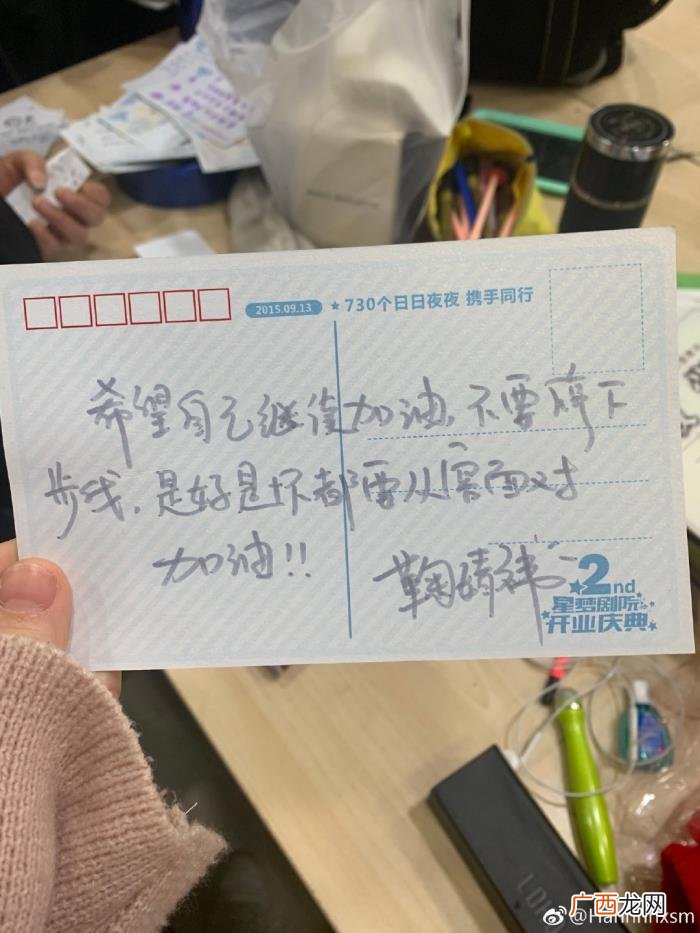 2015.09.13 ★730个日日夜夜 携手同行
希望自己继续加油,不要停下
步线,是好是坏都要从容面对
加油!!
鞠婧祎
2nd
星梦剧院
开业庆典
广西龙网